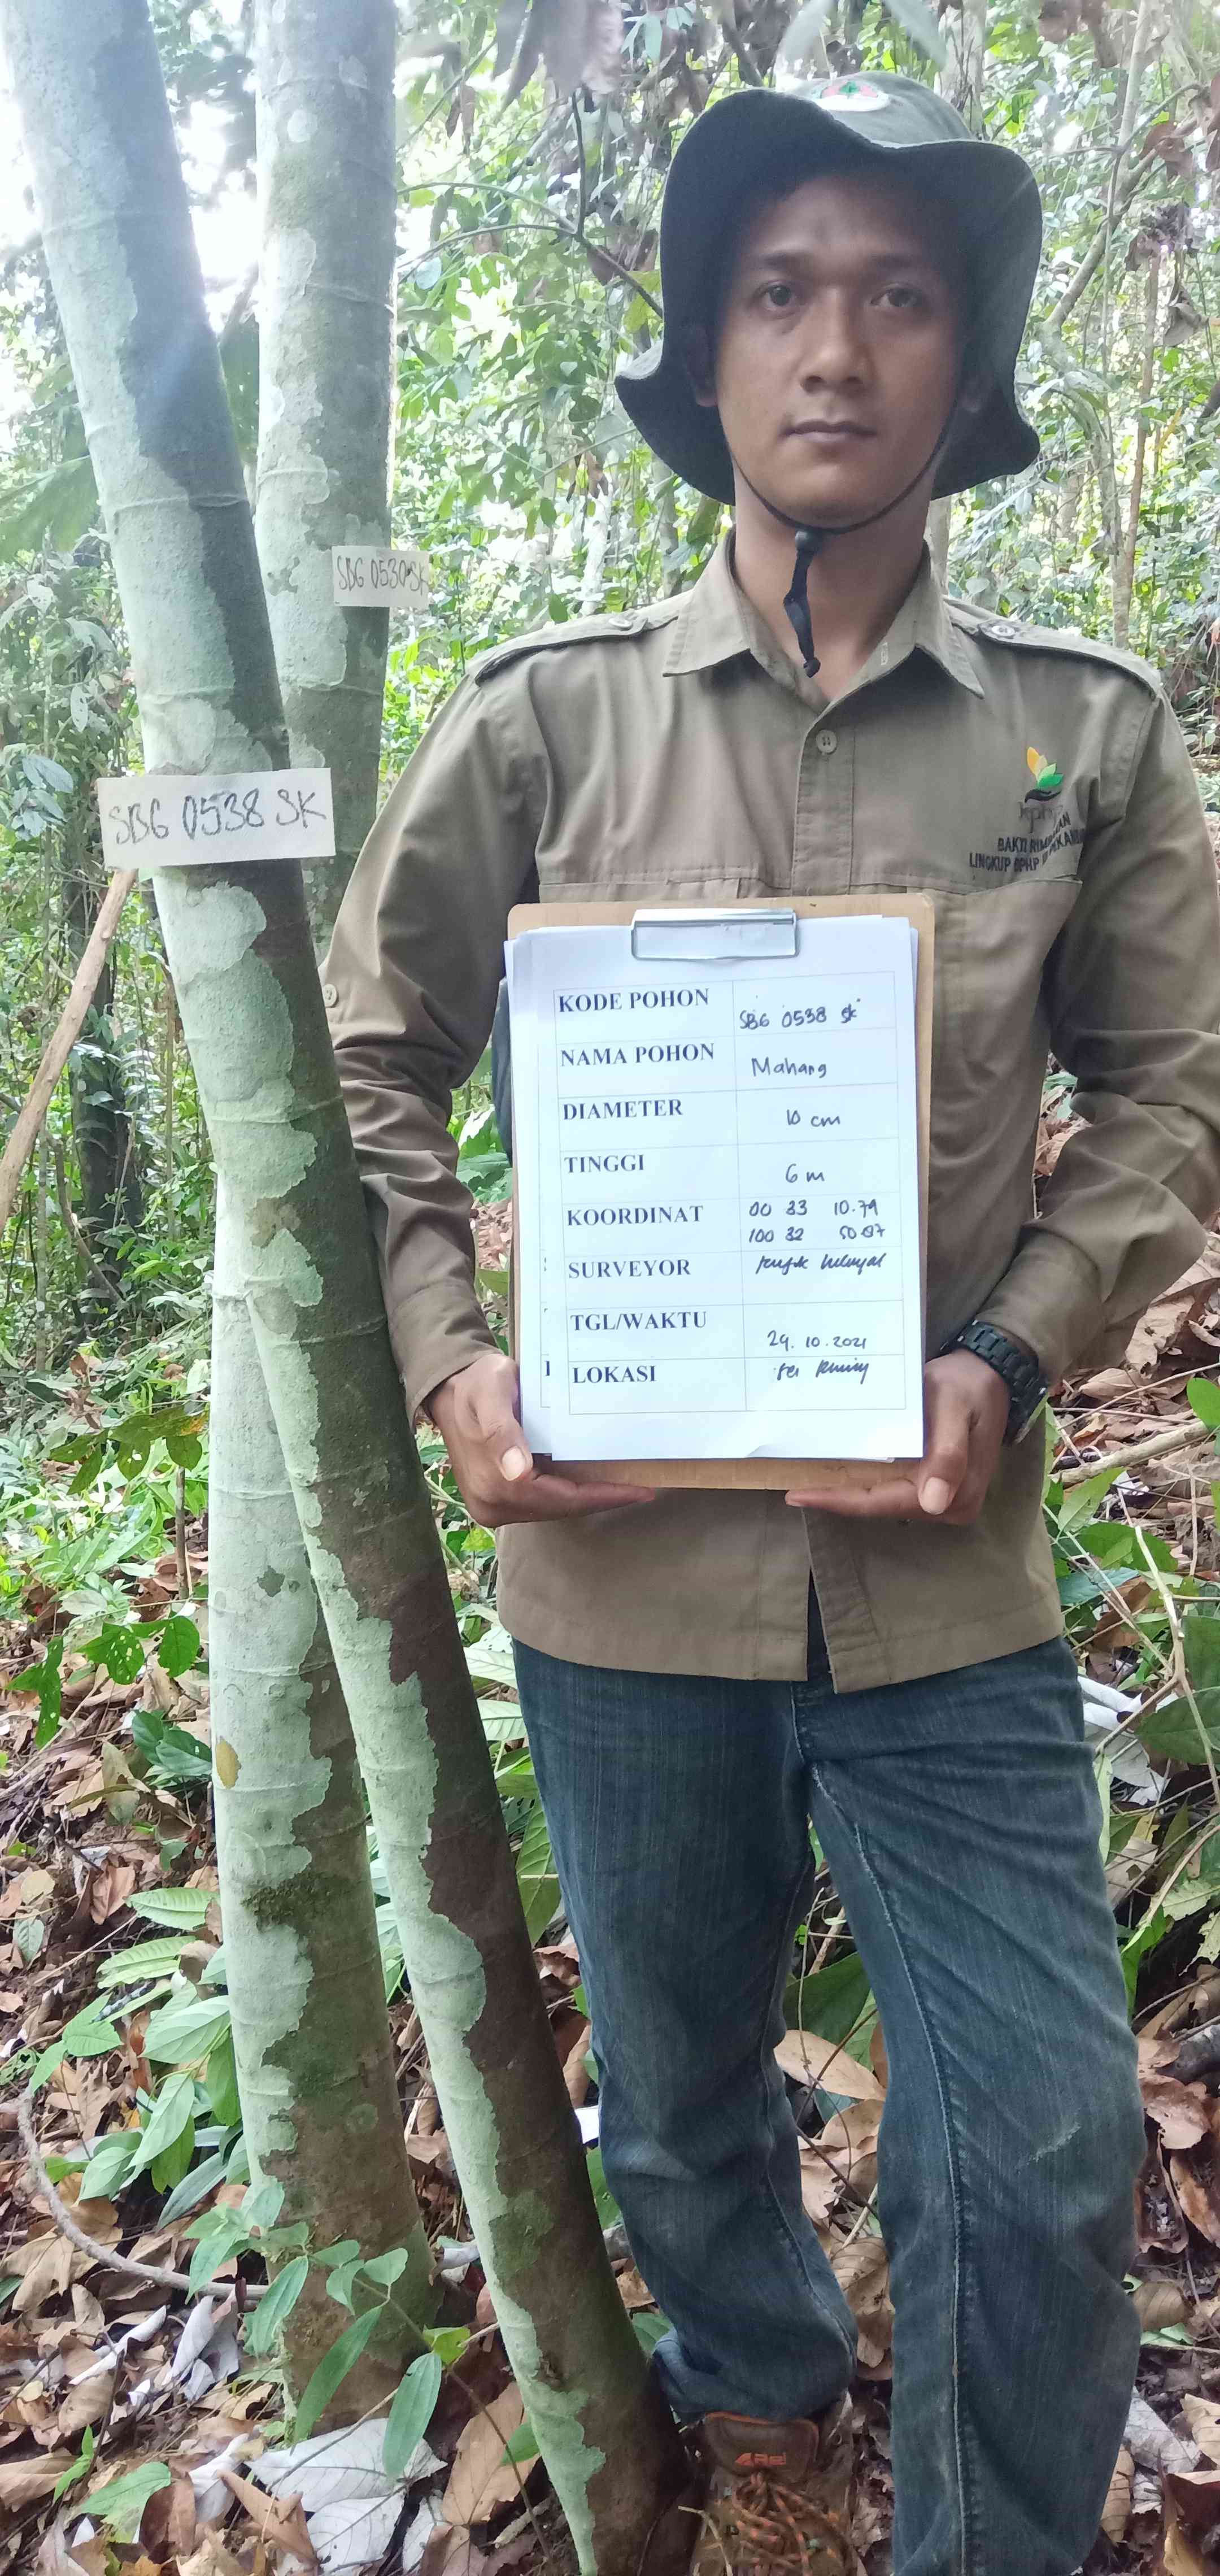 SBG 0530 SK
SBG 0538 SK
kph
BAKTI
LINGKUP BPHP
KODE POHON SBG 0538 SK
NAMA POHON Mahang
DIAMETER 10 cm
TINGGI 6 m
KOORDINAT 00 33 10.79
100 32
SURVEYOR
TGL/WAKTU 29.10.2021
LOKASI
AREI